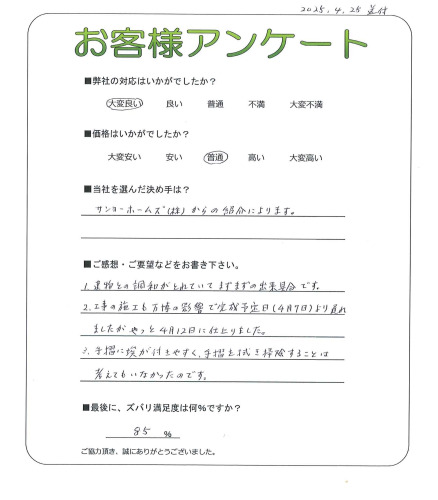 2025.4.25 送付
お客様アンケート
■弊社の対応はいかがでしたか？
大変良い 良い 普通 不満 大変不満
■価格はいかがでしたか？
大変安い 安い 普通 高い 大変高い
■当社を選んだ決め手は？
サンヨーホームズ(株)からの紹介によります。
■ご感想・ご要望などをお書き下さい。
1.建物との調和がとれていてまずまずの出来具合です。
2.工事の施工も万博の影響で完成予定日(4月7日)より遅れ
ましたがやっと4月12日に仕上りました。
3.手摺に埃が付きやすく、手摺を拭き掃除することは
考えてもいなかったのです。
■最後に、ズバリ満足度は何%ですか？
85 %
ご協力頂き、誠にありがとうございました。